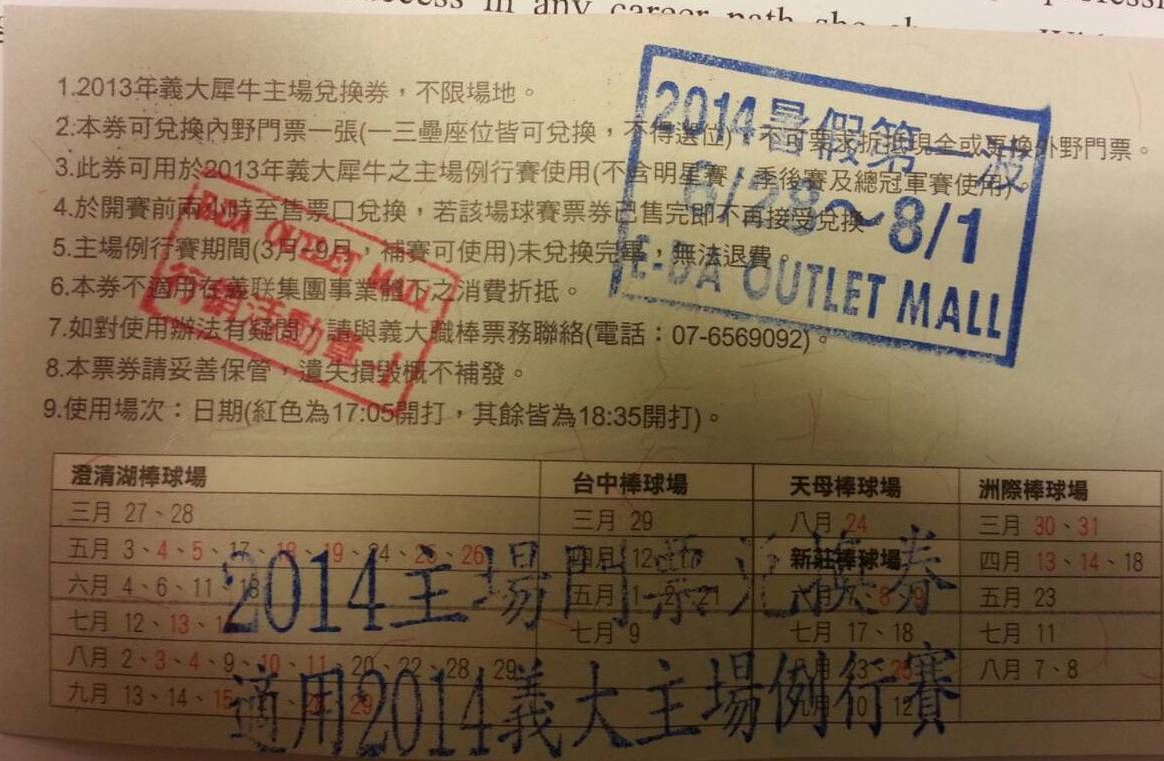 in any career path she
1.2013年義大犀牛主場兌換券，不限場地。
2.本券可兌換內野門票一張(一三壘座位皆可兌換，不得選位)，不可要求折抵現金或更換外野門票。
3.此券可用於2013年義大犀牛之主場例行賽使用(不含明星賽、季後賽及總冠軍賽使用)。
4.於開賽前兩小時至售票口兌換，若該場球賽票券已售完即不再接受兌換
5.主場例行賽期間(3月-9月，補賽可使用)未兌換完畢，無法退費。
6.本券不適用在義联集團事業體下之消費折抵。
7.如對使用辦法有疑問，請與義大職棒票務聯絡(電話：07-6569092)。
8.本票券請妥善保管，遺失損毀概不補發。
9.使用場次：日期(紅色為17:05開打，其餘皆為18:35開打)。
2014暑假第一波
6/28～8/1
E-DA OUTLET MALL
EDA OUTLET MALL
行銷活動章-1
澄清湖棒球場 台中棒球場 天母棒球場 洲際棒球場
三月 27、28 三月 29 八月 24 三月 30、31
五月 3、4、5、17、18、19、24、25、26 四月 12 新莊棒球場 四月 13、14、18
六月 4、6、11 五月 五月 23
七月 12、13 七月 9 七月 17、18 七月 11
八月 2、3、4、9、10、11、20、22、28、29 八月 7、8
九月 13、14、15
2014主場門票兌換券
適用2014義大主場例行賽